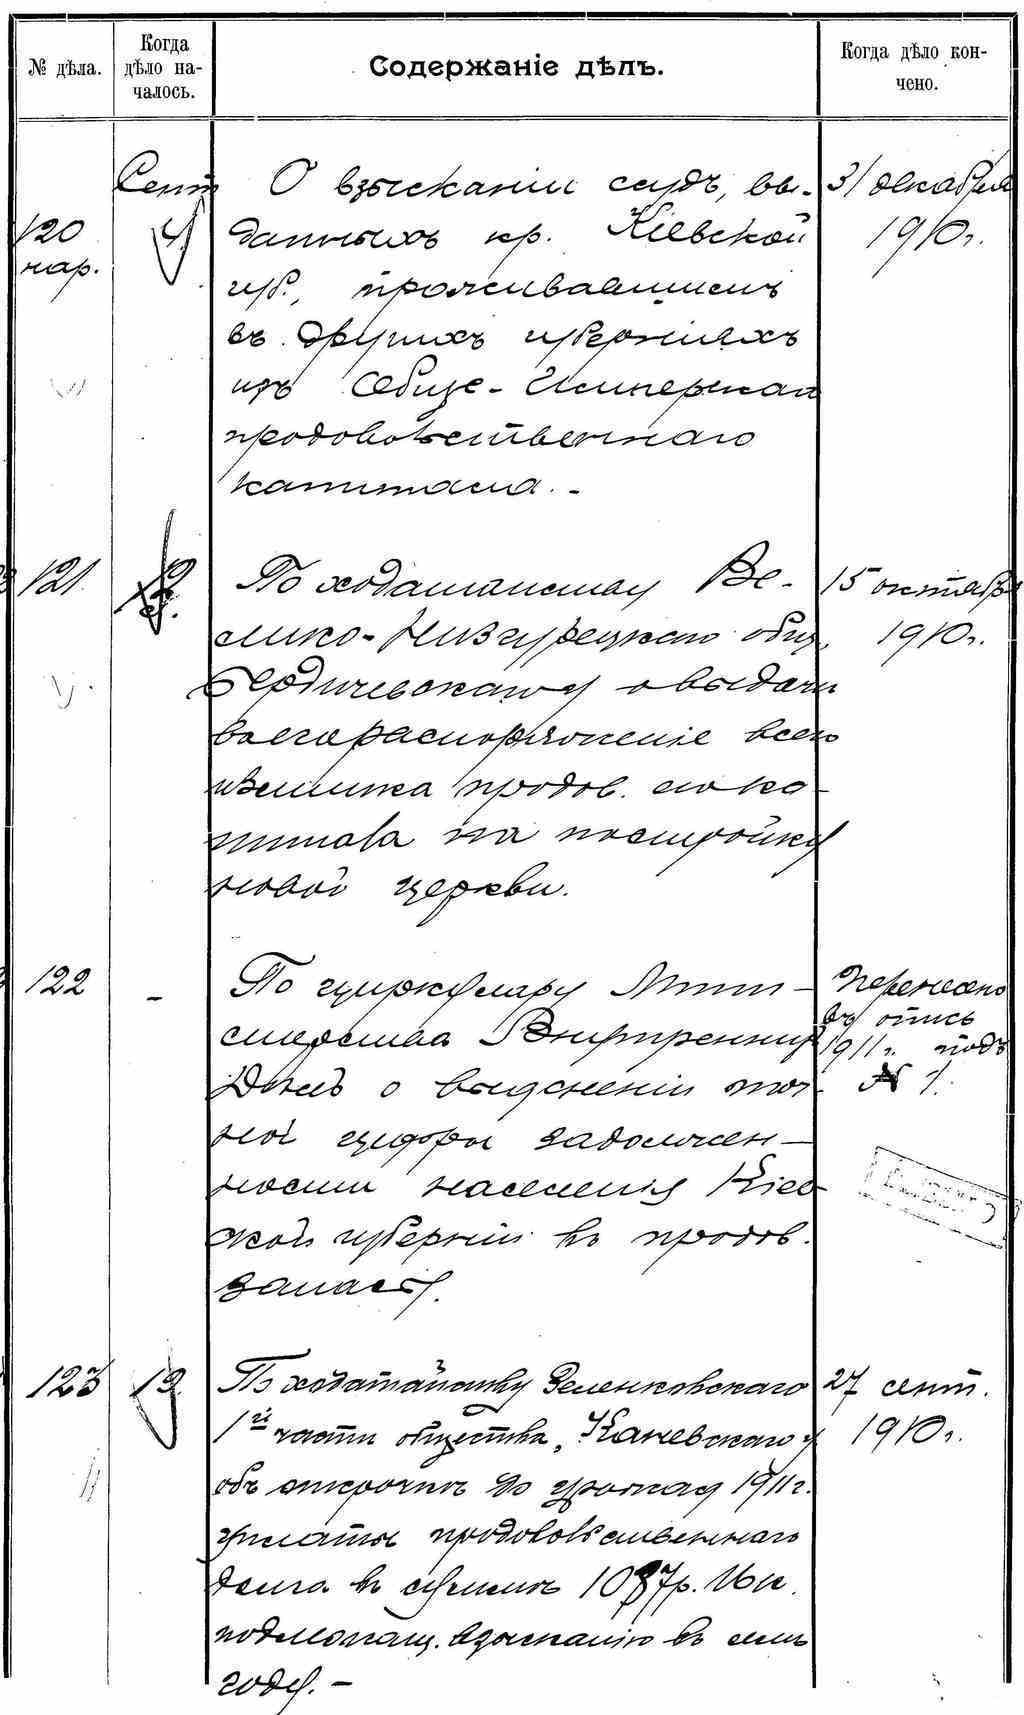 № дѣла.
Когда
дѣло на-
чалось.
Содержаніе дѣлъ.
Когда дѣло кон-
чено.
120
нар.
Сент
4.
О взысканіи ссудъ, вы-
данныхъ кр. Кіевской
губ., проживавшимъ
въ другихъ губерніяхъ
изъ Обще-Имперскаго
продовольственнаго
капитала. -
31 декабря
1910г.
121.
По ходатайству Ве-
лико-Низгурецкаго общ.
Бердичевскаго у о выдачи
въ его распоряженіе всего
излишка продов. его ка-
питала на постройку
новой церкви.
15 октября
1910г.
122
-
По циркуляру Мини-
стерства Внутреннихъ
Дѣлъ о выясненіи точ-
ной цифры задолжен-
ности населенія Кіев
ской губерніи въ продов.
запасъ.
Перенесено
въ опись
1911г. подъ
№ 1.
123
13.
По ходатайству Зеленковскаго
1й части общества, Каневскаго у
объ отсрочкѣ до урожая 1911г.
уплаты продовольственнаго
долга въ суммѣ 1087р. 16к.
подлежащ. взысканію въ семъ
году. -
27 сент.
1910г.